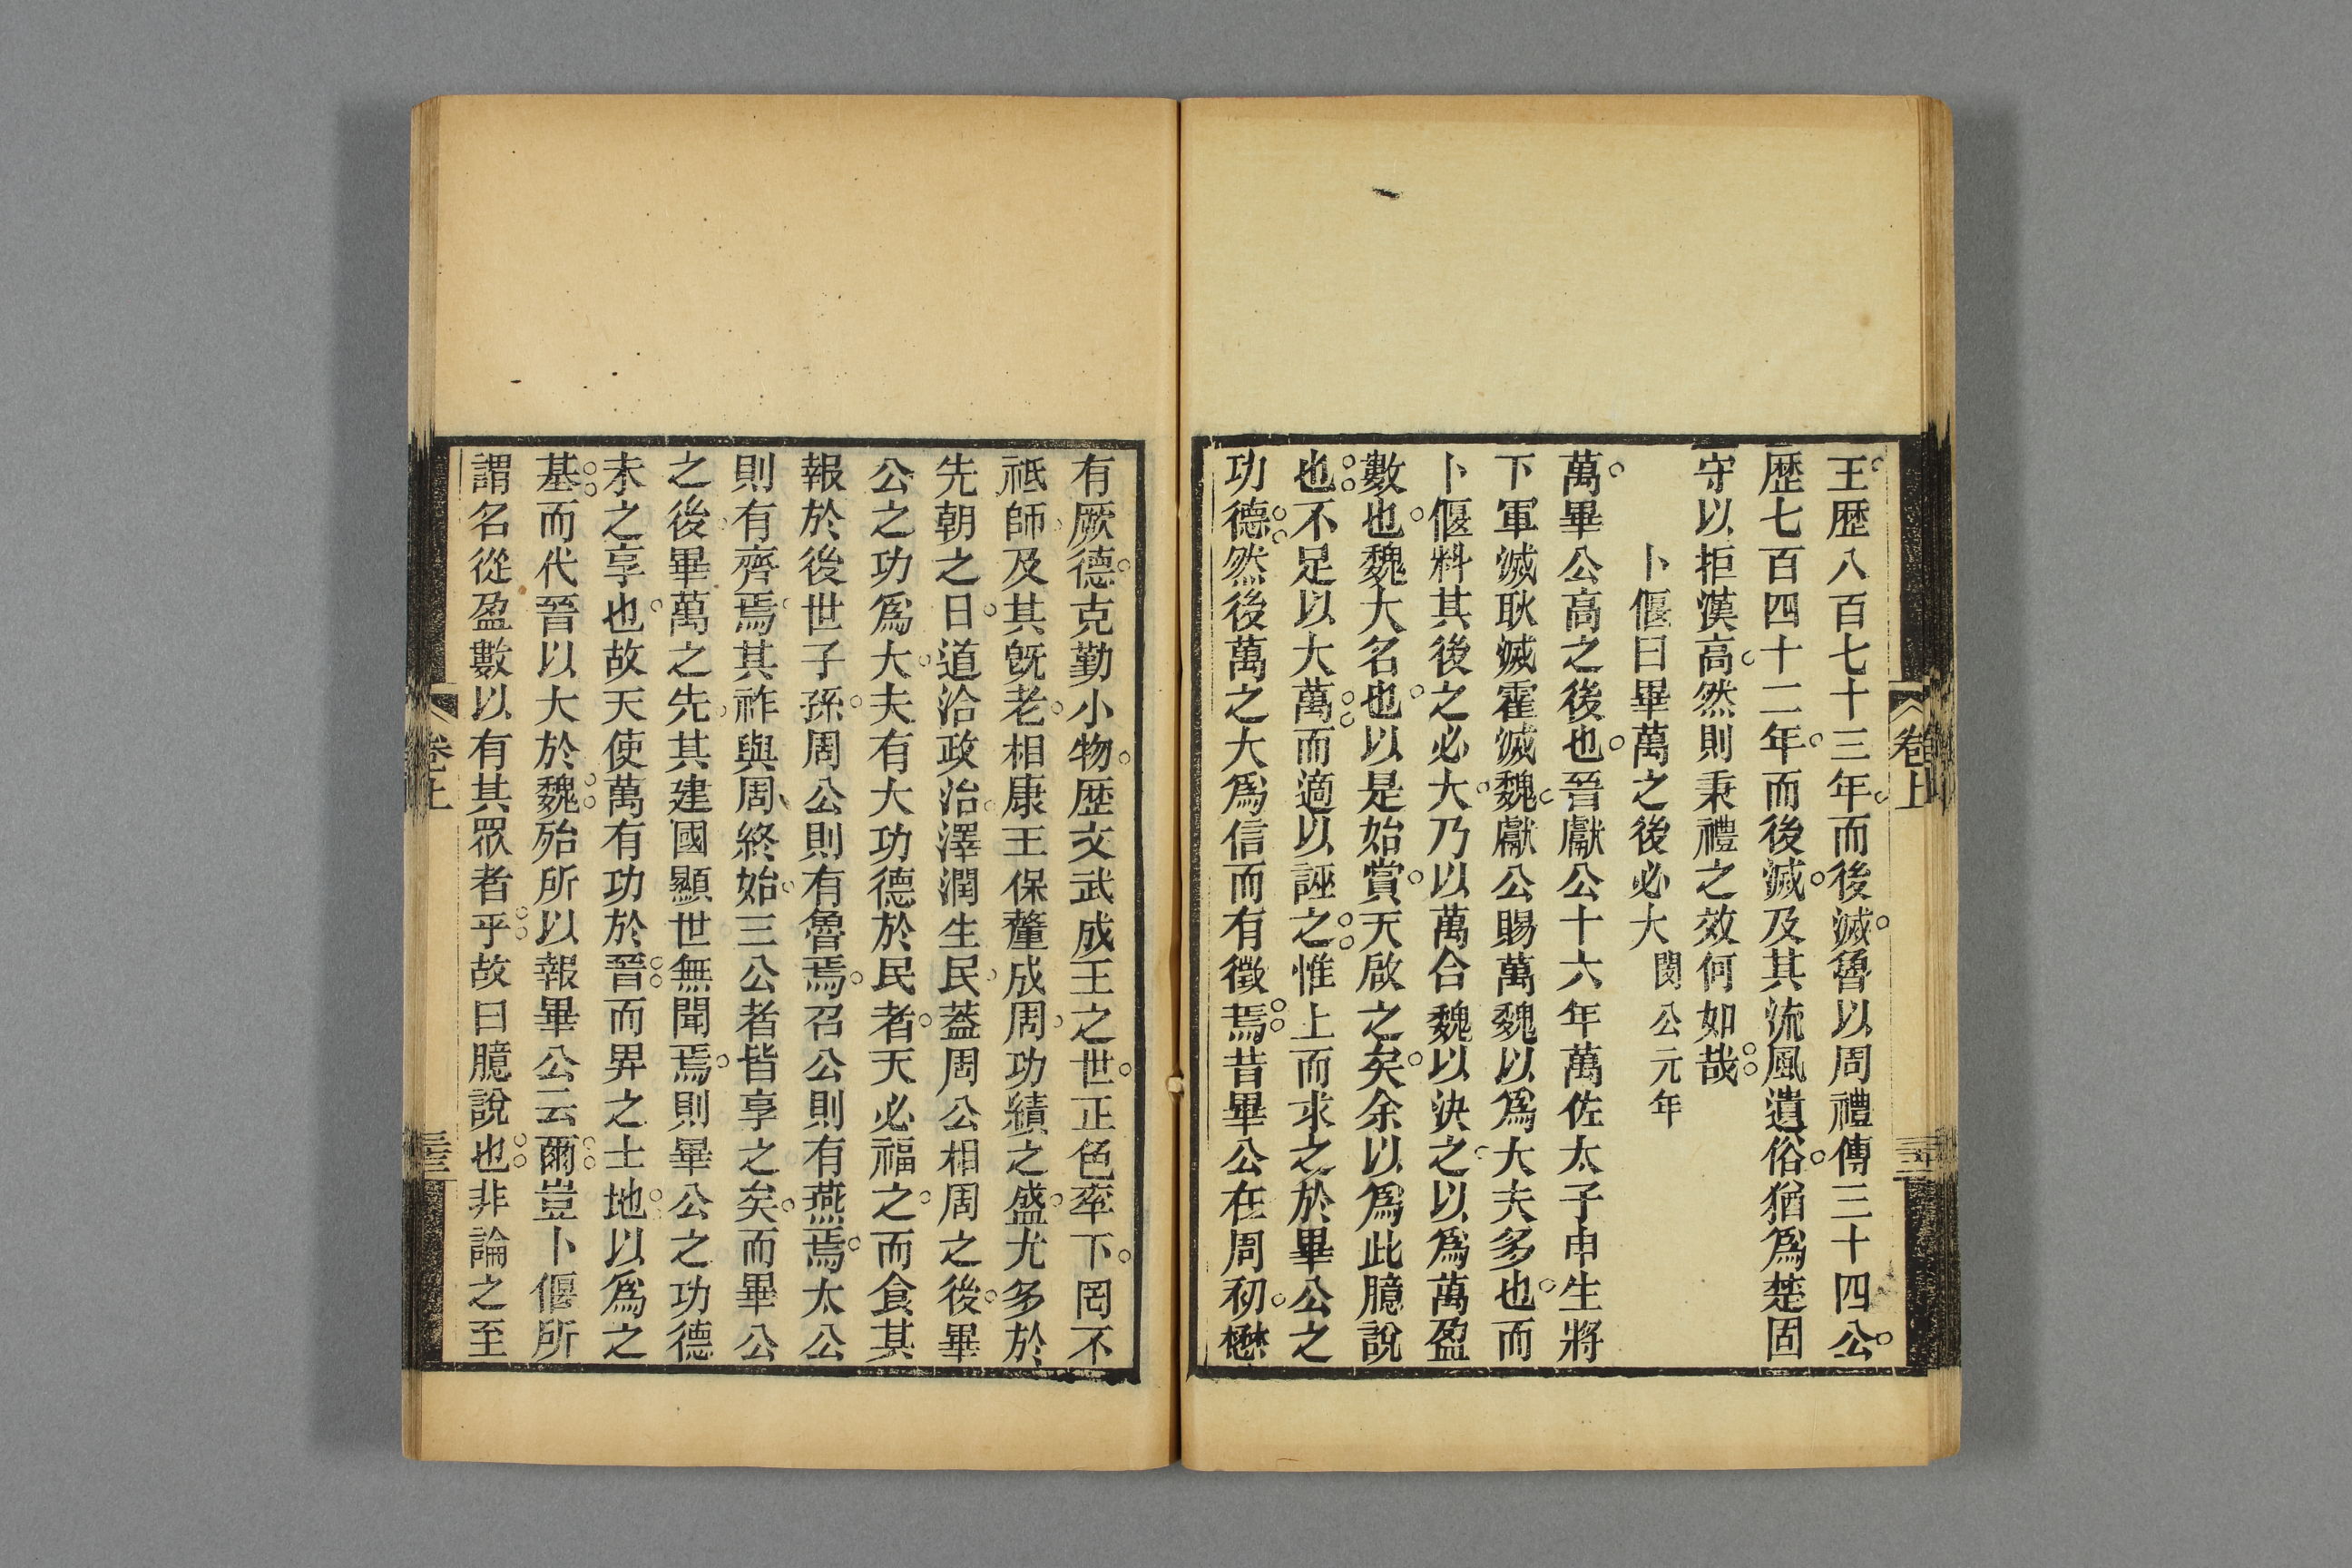 王歴八百七十三年而後滅魯以周禮傳三十四公
歴七百四十二年而後滅及其流風遺俗猶爲楚固
守以拒漢高然則秉禮之效何如哉
卜偃曰畢萬之後必大閔公元年
萬畢公高之後也晉獻公十六年萬佐太子申生將
下軍滅耿滅霍滅魏獻公賜萬魏以爲大夫多也而
卜偃料其後之必大乃以萬合魏以決之以爲萬盈
數也魏大名也以是始賞天啟之矣余以爲此臆說
也不足以大萬而適以誣之惟上而求之於畢公之
功德然後萬之大爲信而有徵焉昔畢公在周初懋
卷上
有厥德克勤小物歴文武成王之世正色率下罔不
祗師及其旣老相康王保釐成周功績之盛尤多於
先朝之日道洽政治澤潤生民蓋周公相周之後畢
公之功爲大夫有大功德於民者天必福之而食其
報於後世子孫周公則有魯焉召公則有燕焉太公
則有齊焉其祚與周終始三公者皆享之矣而畢公
之後畢萬之先其建國顯世無聞焉則畢公之功德
未之享也故天使萬有功於晉而畀之士地以爲之
基而代晉以大於魏殆所以報畢公云爾豈卜偃所
謂名從盈數以有其眾者乎故曰臆說也非論之至
卷上